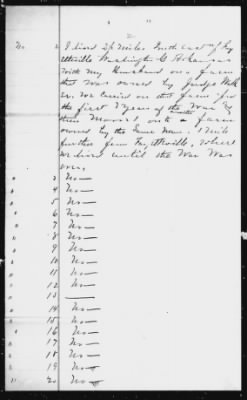 No. 2 I lived 2½ miles South east of Fay
etteville Washington C Arkansas
with my husband on a farm
that was owned by Judge Walk
er. We carried on that farm for
the first 2 years of the War &
then moved onto another farm
owned by the same man. 1 mile
further from Fayetteville, where
we lived until the War was
over.
" 3 No—
" 4 No—
" 5 No—
" 6 No—
" 7 No—
" 8 No—
" 9 No—
" 10 No—
" 11 No—
" 12 No—
" 13 —
" 14 No—
" 15 No—
" 16 No—
" 17 No—
" 18 No—
" 19 No—
" 20 No—